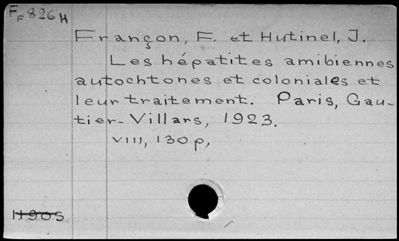 FF826H
Françon, F. et Hutinel, J.
Les hépatites amibiennes
autochtones et coloniales et
leur traitement. Paris, Gau-
tier-Villars, 1923.
VIII, 130p,
11905